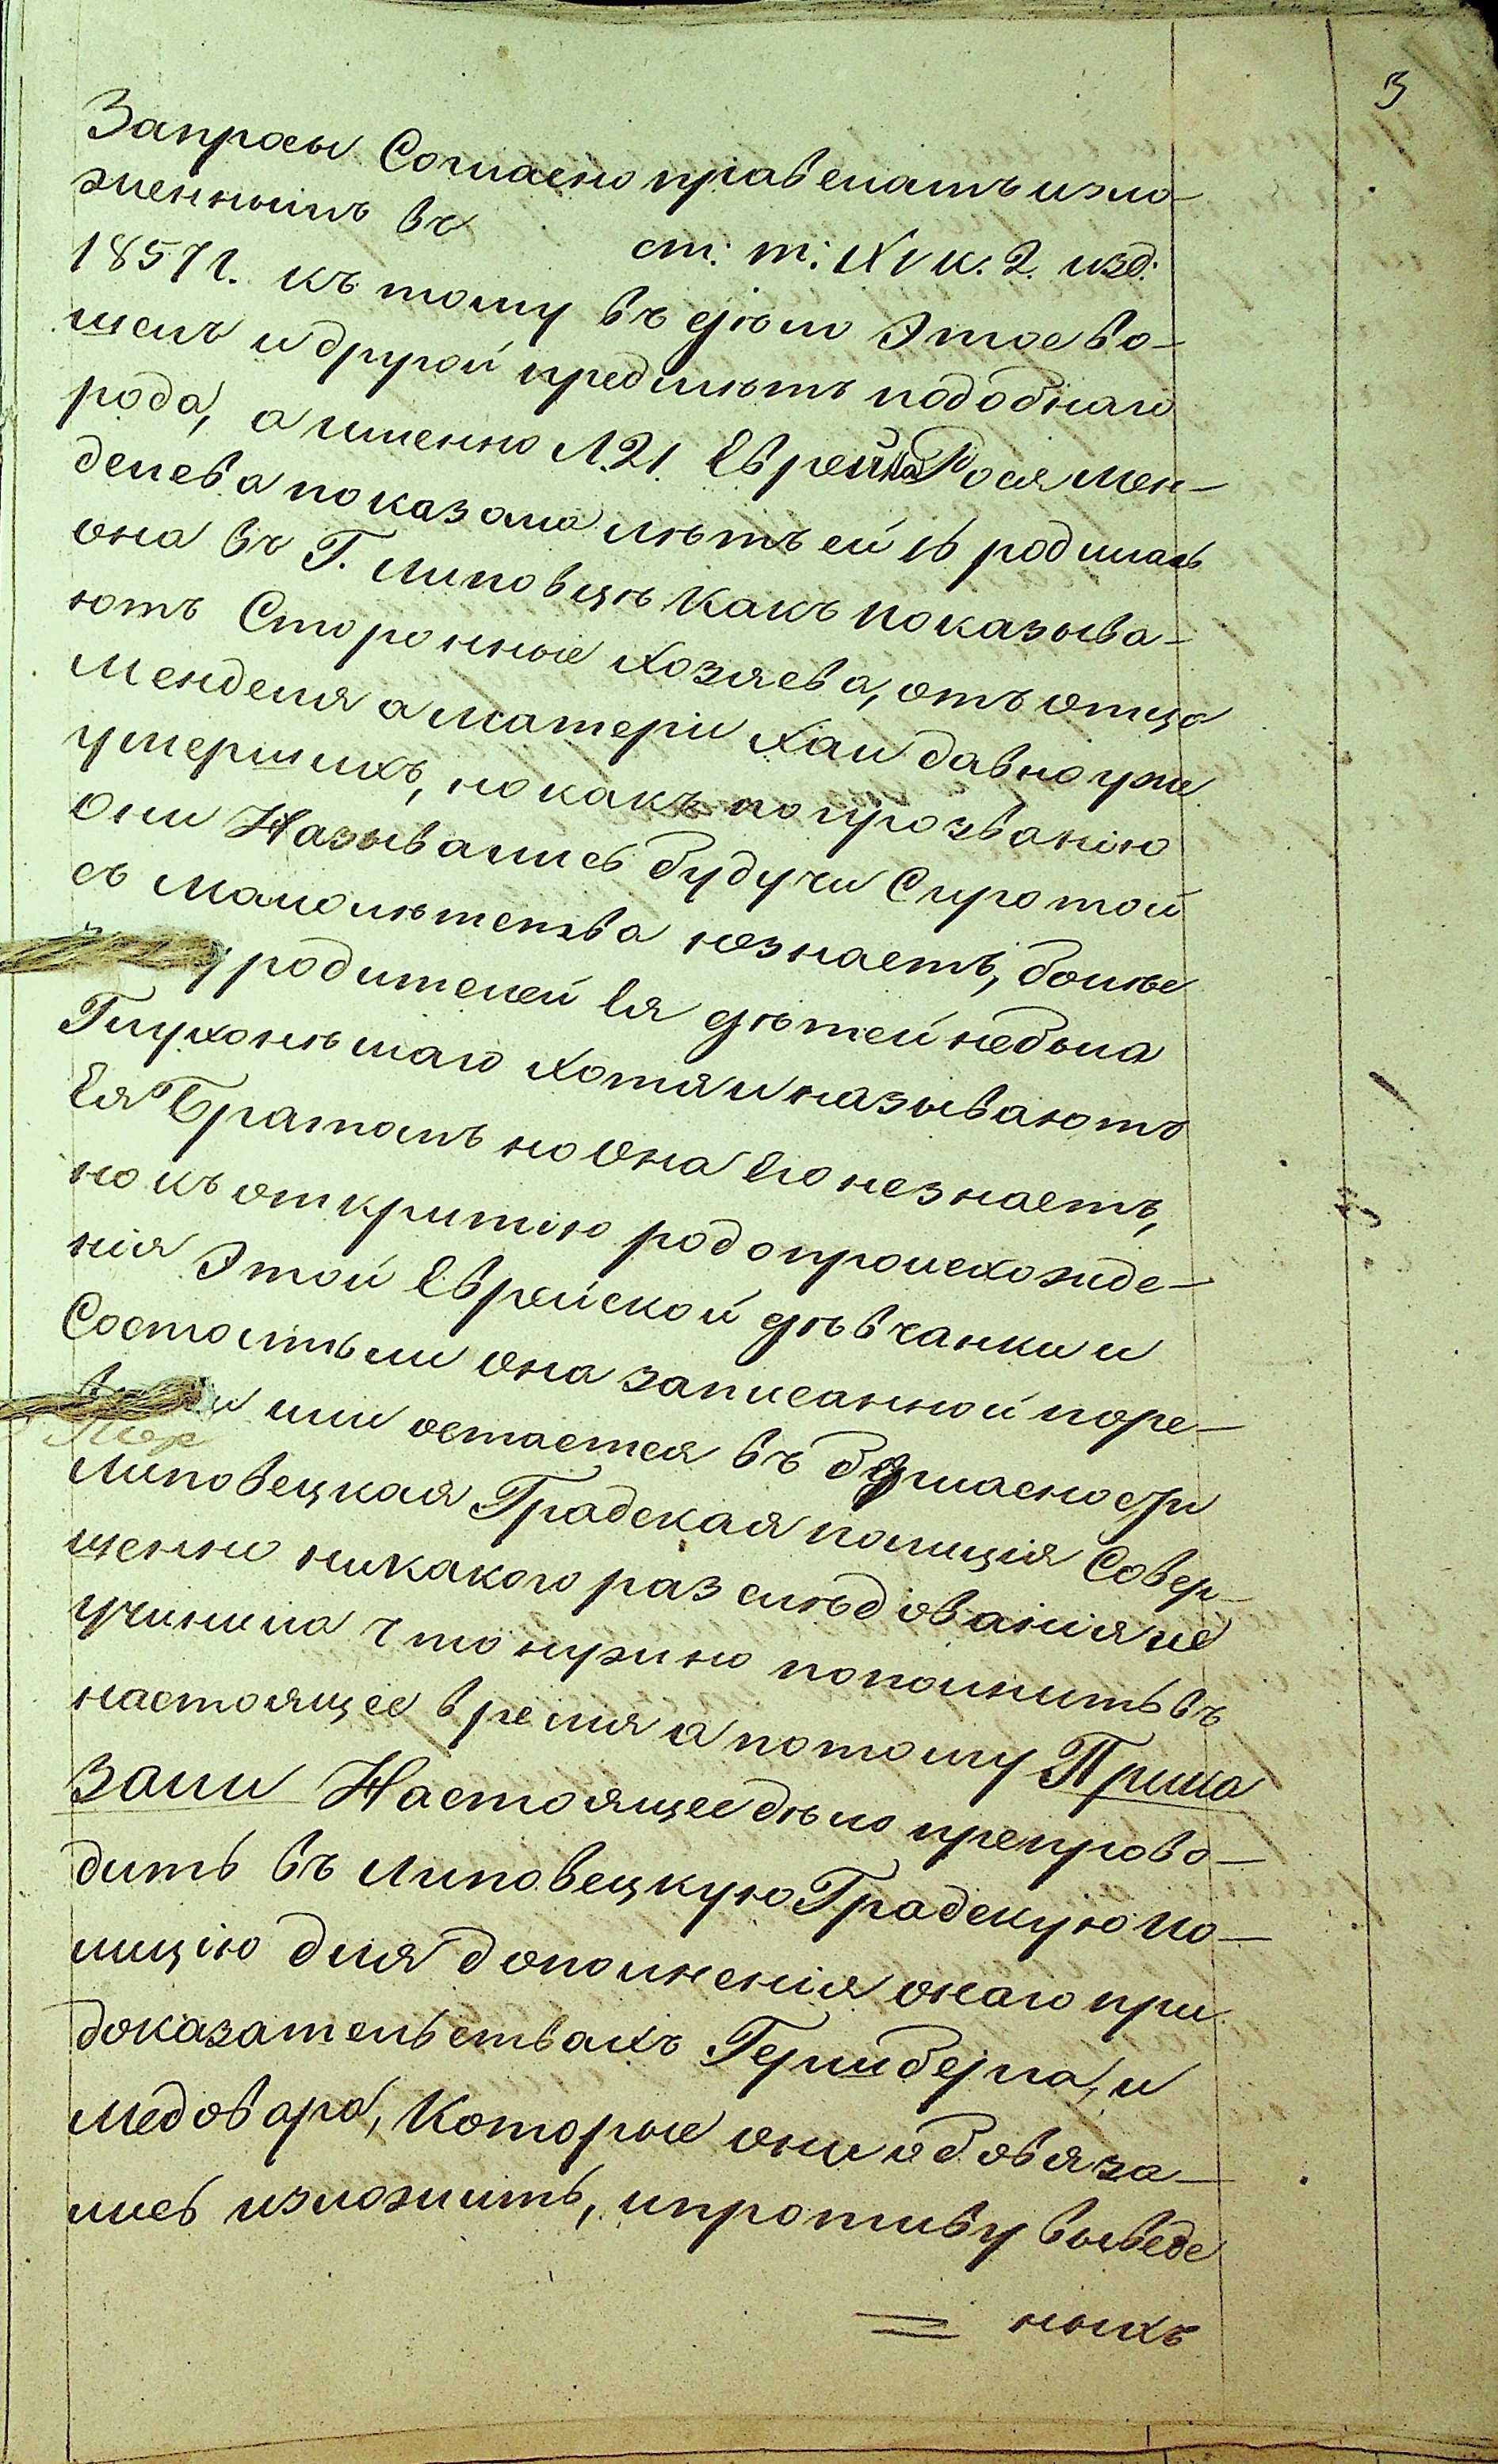 3
Запросы Согласно правеламъ изло-
женнымъ въ ст: т: XV к. 2. изд:
1857 г. къ тому въ дѣлѣ Этое во-
шелъ и другой предмѣтъ подобнаго
рода, а именно Л. 21 Еврейка Рося Мен-
делева показала лѣтъ ей 16 родилась
она въ Г. Липовцѣ какъ показыва-
ютъ Сторонные хозяева, отъ отца
Менделя а матери Хаи давно уже
умершихъ, но какъ по прозванію
они Назывались будучи Сиротой
съ малолѣтства незнаетъ, болѣе
у родителей Ея дѣтей небыла
Глухонѣмаго хотя и называютъ
Ея Братомъ но Она Его незнаетъ,
но къ открытію родопроисхожде-
нія Этой Еврейской дѣвчанки и
Состоитъ ли она записанной по ре-
или остается въ безгласности
Липовецкая Градская полиція Совер-
шенно никакого разслѣдованія не
учинила что нужно пополнить въ
настоящее время а потому Прика
зали Настоящее дѣло препрово-
дить въ Липовецкую Градскую по-
лицію для дополненія онаго при
доказательствахъ Гершберга, и
Медовара, Которые они обовяза-
лись изложить, и противу выведе
ныхъ